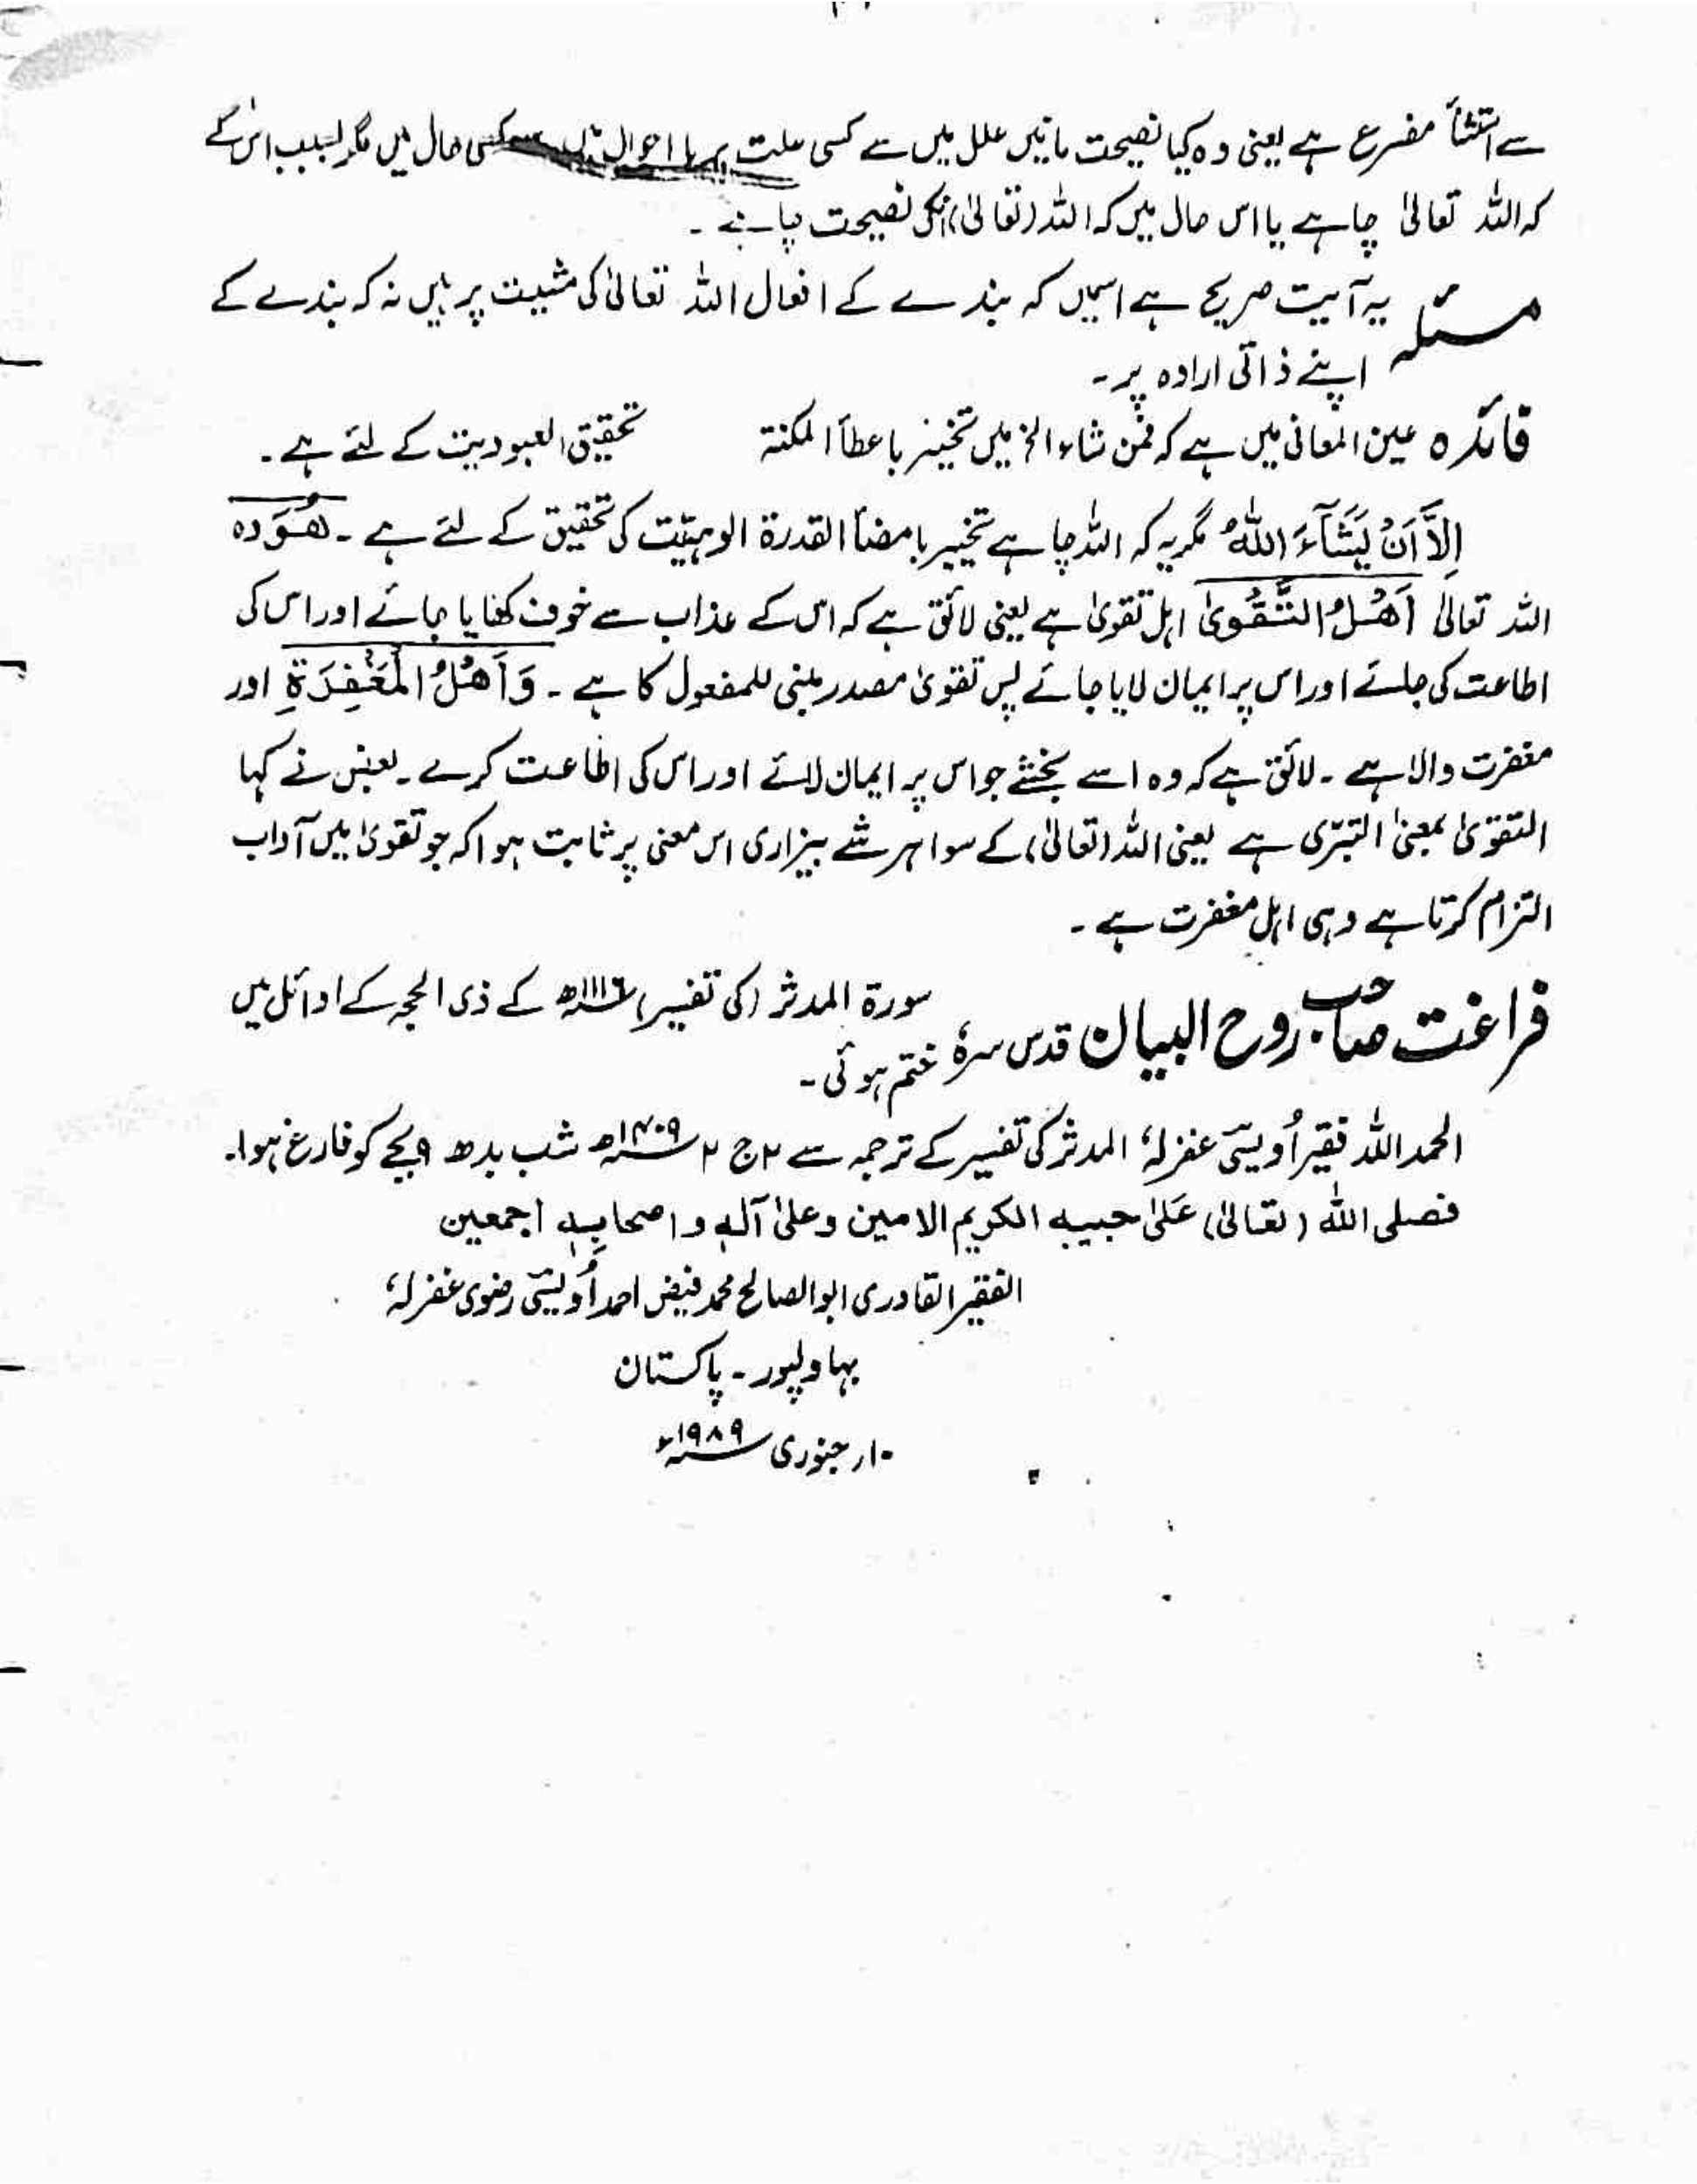 سے استثنأ مفرع ہے یعنی وہ کیا نصیحت مانیں علل میں سے کسی علت پر یا احوال میں سے کسی حال میں مگر بسبب اس کے
کہ اللہ تعالیٰ چاہے یا اس حال میں کہ اللہ (تعالیٰ) انکی نصیحت چاہے ۔
مسئلہ یہ آیت صریح ہے اسمیں کہ بندے کے افعال اللہ تعالیٰ کی مشیت پر ہیں نہ کہ بندے کے
اپنے ذاتی ارادہ پر۔
فائدہ عین المعانی میں ہے کہ فمن شاء الخ میں تخییر باعطأ المکنۃ تحقیق العبودیت کے لئے ہے ۔
اِلَّا اَنْ یَّشَآءَ اللّٰہُ مگر یہ کہ اللہ چاہے تخییر بامضأ القدرۃ الوہیّت کی تحقیق کے لئے ہے ۔ ھُوَ وہ
اللہ تعالیٰ اَھْلُ التَّقْوٰی اہل تقویٰ ہے یعنی لائق ہے کہ اس کے عذاب سے خوف کھایا جائے اور اس کی
اطاعت کی جائے اور اس پر ایمان لایا جائے پس تقویٰ مصدر مبنی للمفعول کا ہے ۔ وَاَھْلُ الْمَغْفِرَۃِ اور
مغفرت والا ہے ۔ لائق ہے کہ وہ اسے بخشے جو اس پر ایمان لائے اور اس کی اطاعت کرے ۔ بعض نے کہا
التقویٰ بمعنیٰ التبرّی ہے یعنی اللہ (تعالیٰ) کے سوا ہر شے بیزاری اس معنی پر ثابت ہوا کہ جو تقویٰ میں آداب
التزام کرتا ہے وہی اہل مغفرت ہے ۔
فراغت صاحب روح البیان قدس سرہٗ سورۃ المدثر (کی تفسیر) ۱۱۱۶ھ کے ذی الحجہ کے اوائل میں
ختم ہوئی ۔
الحمد اللہ فقیر اُویسی غفرلہٗ المدثر کی تفسیر کے ترجمہ سے ۲ ج ۲ ۱۴۰۹ھ شب بدھ ۹ بجے کو فارغ ہوا۔
فصلی اللہ (تعالیٰ) عَلیٰ حبیبہ الکریم الامین وعلیٰ آلہٖ واصحابہٖ اجمعین
الفقیر القادری ابوالصالح محمد فیض احمد اُویسی رضوی غفرلہٗ
بہاولپور ۔ پاکستان
۱۰ر جنوری ۱۹۸۹ء